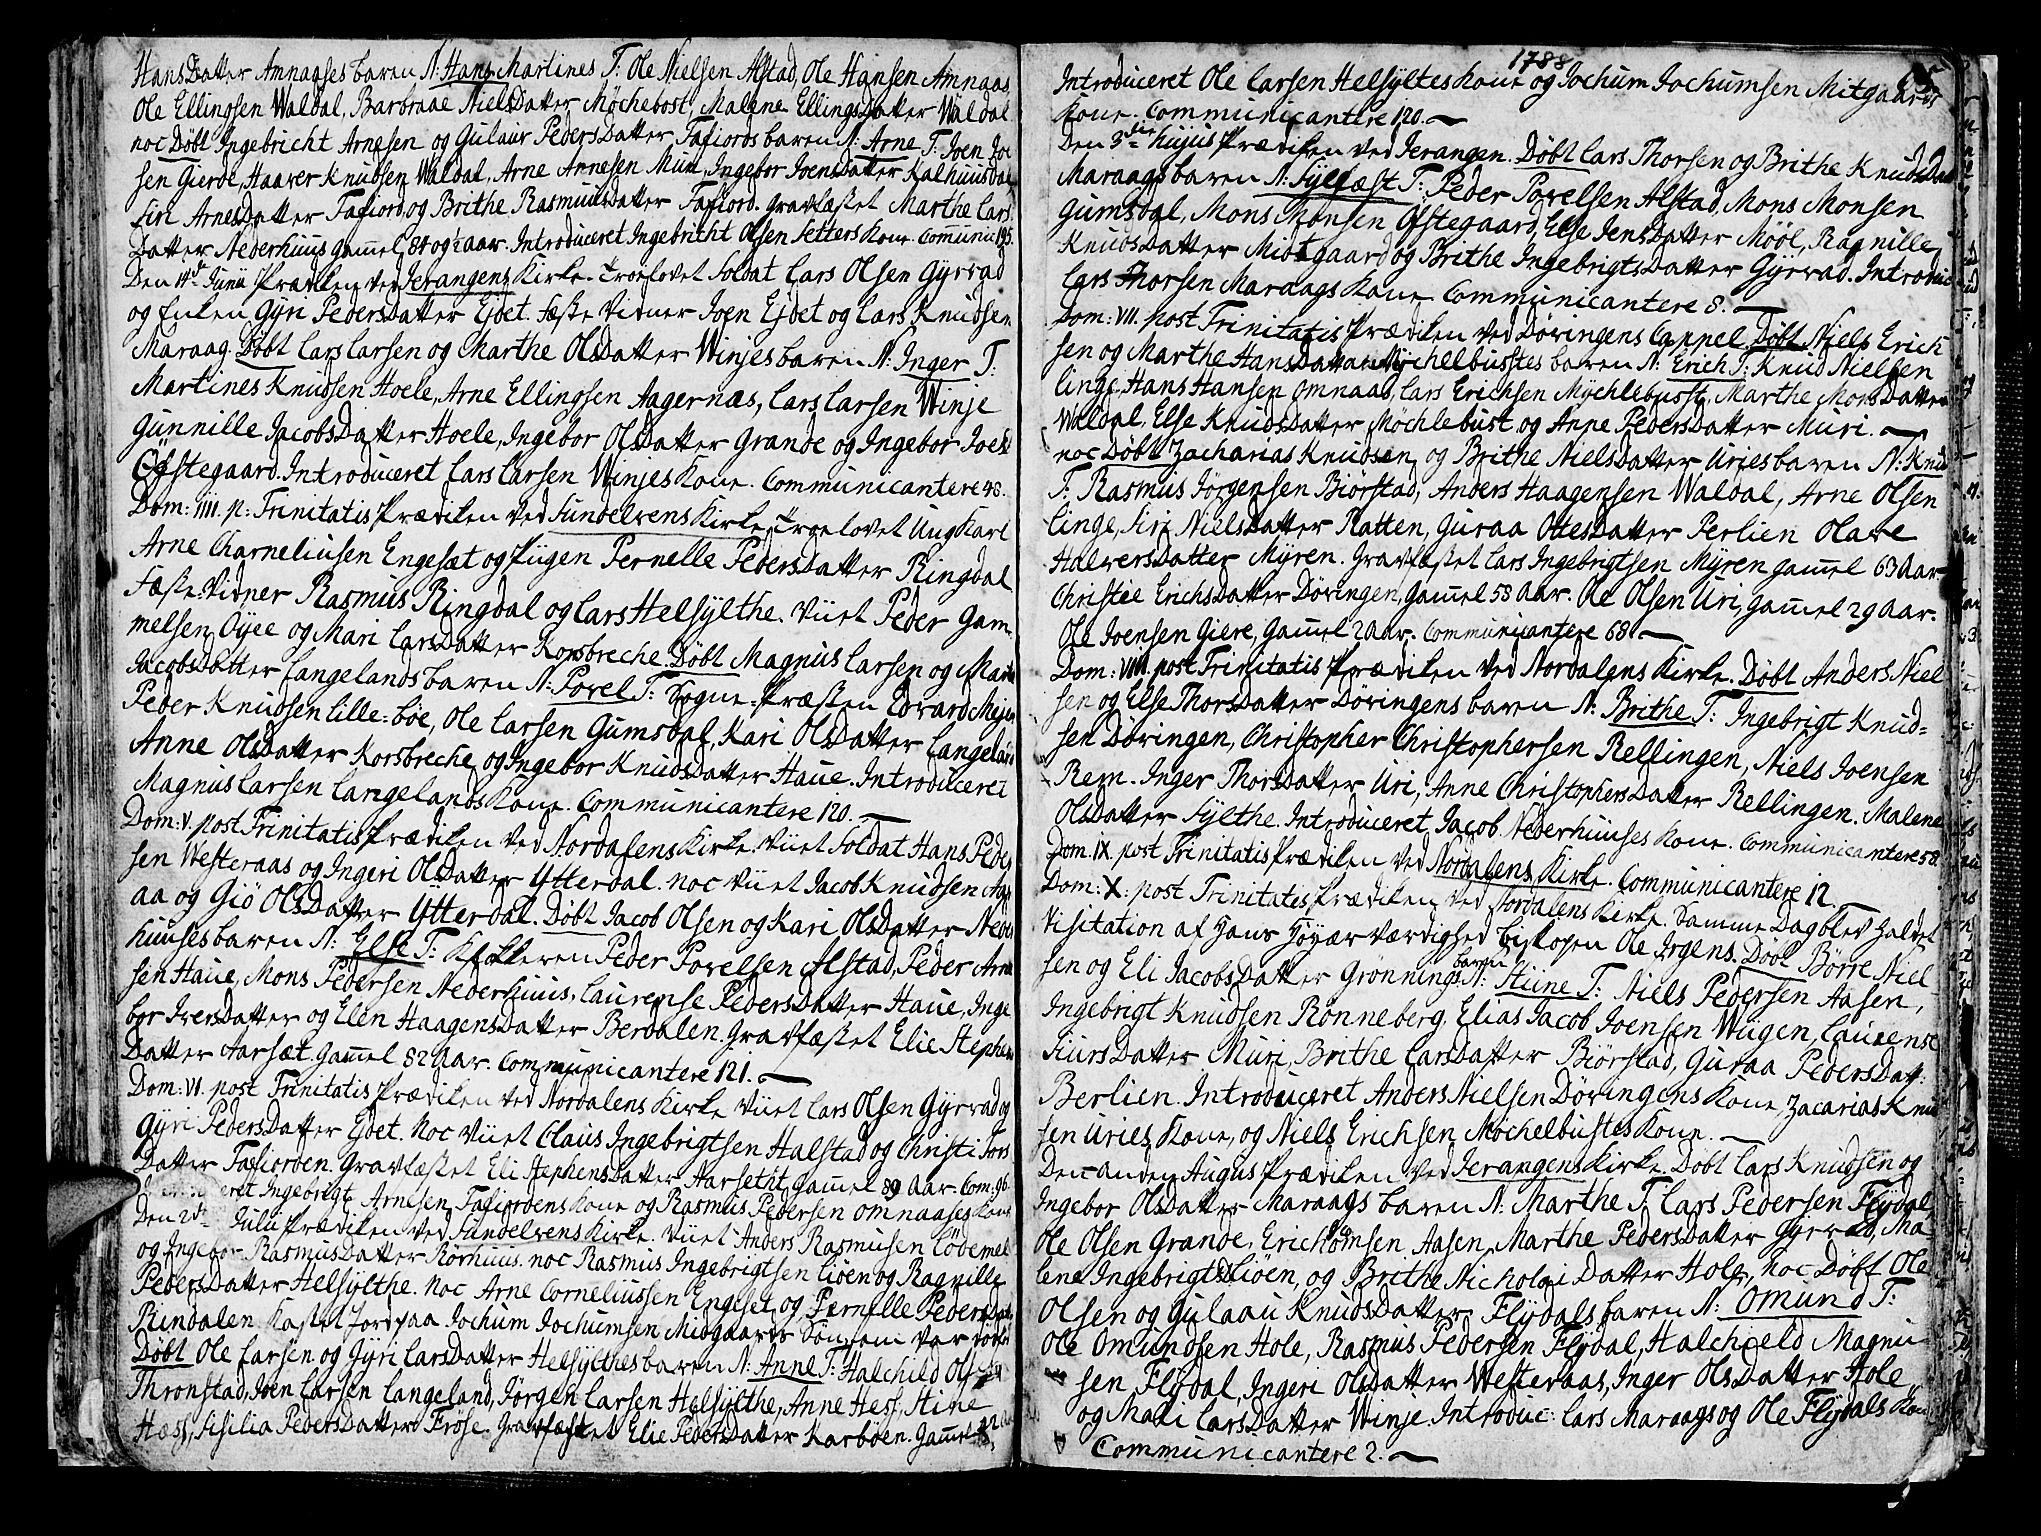 HansDatter Amnaases baren N: Hans Martines T: Ole Nielsen Alstad, Ole Hansen Amnaas
Ole Ellingsen Waldal, Barbraae NielsDatter Möchebost, Malene EllingsDatter Waldal
noc Döbt Ingebricht Arnesen og Gulaug PedersDatter Tafiords baren N: Arne T: Joen Joe
sen Gierde, Haaver Knudsen Waldal, Arne Arnesen Muri, Ingebor JoensDatter Kalhuusdal
Siri ArnesDatter Tafiord og Brithe RasmusDatter Tafiord. Gravfæstet Marthe Lars
Datter Nederhuus gamel 84 og ½ aar. Introduceret Ingebricht Olsen Setters Kone. Communic 195.
Den 14de Junii Prædiken ved Jerangens Kirke. Troelovet Soldat Lars Olsen Gyrvad
og Enken Gyri PedersDatter Ejdet. Fæste Vidner Joen Ejdet og Lars Knudsen
Maraag. Döbt Lars Larsen og Marthe OlsDatter Winjes baren N: Inger T:
Martines Knudsen Hoele, Arne Ellingsen Aagernæs, Lars Larsen Winje
Gunnille JacobsDatter Hoele, Ingebor OlsDatter Grande og Ingebor Joels
Ofstegaard. Introduceret Lars Larsen Winjes Kone. Communicantere 48.
Dom: IIII. p: Trinitatis Prædiken ved Sundelvens Kirke. Troelovet Ung Karl
Arne Charneliusen Engesæt og Pigen Pernelle PedersDatter Ringdal
Fæste-Vidner Rasmus Ringdal og Lars Helsylthe. Viiet Peder Gam-
melsen Oyee og Mari LarsDatter Korsbreche. Döbt Magnus Larsen og Marte
JacobsDatter Langelands baren N: Povel T: Sogne-Præsten Edvard Mejer
Peder Knudsen Lille-böe, Ole Larsen Gumsdal, Kari OlsDatter Langeland
Anne OlsDatter Korsbreche og Ingebor KnudsDatter Haue. Introduceret
Magnus Larsen Langelands Kone. Communicantere 120.
Dom: V. post Trinitatis Prædiken ved Nordalens Kirke. Viiet Soldat Hans Peder
sen Westeraas og Ingeri OlsDatter Ytterdal. noc Viiet Jacob Knudsen
aa og Giö OlsDatter Ytterdal. Döbt Jacob Olsen og Kari OlsDatter Neder
huuses baren N: Else T: Klokkeren Peder Povelsen Alstad, Peder Arne
sen Haue, Mons Pedersen Nederhuus, Laurense PedersDatter Haue, Inge
bor IversDatter og Elen HaagensDatter Berdalen. Gravfæstet Elie Stephens
Datter Aarsæt. Gamel 82 Aar. Communicantere 121.
Dom: VI. post Trinitatis Prædiken ved Nordalens Kirke Viiet Lars Olsen Gyrvad og
Gyri PedersDatter Ejdet. Noc Viiet Claus Ingebrigtsen Halstad og Christi Iors
Datter Tafiorden. Gravfæstet Eli StephensDatter Aarsetht gamel 89 Aar. Com: 96.
Introduceret Ingebrigt Arnesen Tafiordens Kone og Rasmus Pedersen Omnaases Kone
Den 2de Julii Prædiken ved Sundelvens Kirke. Viiet Anders Rasmusen Lödemel
og Ingebor RasmusDatter Rörhuus. noc Rasmus Ingebrigtsen Liöen og Ragnille
PedersDatter Helsylthe. noc Arne Corneliussen Engeset og Pernille PedersDatter
Rindalen. Kastet Jord paa Jochum Jochumsen Midgaards Son som var död
Döbt Ole Larsen og Gyri LarsDatter Helsylthes baren N: Anne T: Halchild Olsen
Thronstad, Joen Larsen Langeland, Jörgen Larsen Helsylthe, Anne Hess, Stine
Hess, Sisilia PedersDatter Frøse. Gravfæstet Elie PedersDatter Karböen. Gamel
1788
Introduceret Ole Larsen Helsyltes Kone og Jochum Jochumsen Mitgaards
Kone. Communicantere 120.
Den 3die hujus Prædiken ved Jerangen. Döbt Lars Thorsen og Brithe KnudsDatter
Maraags baren N: Sylfæst T: Peder Povelsen Alstad, Mons Monsen
Gumsdal, Mons Monsen Ofstegaard, Else JensDatter Möøl, Ragnille
KnudsDatter Miotgaard og Brithe IngebrigtsDatter Gyrvad. Introduc
Lars Thorsen Maraags Kone. Communicantere 8.
Dom: VII. post Trinitatis Prædiken ved Döringens Cappel Döbt Niels Erich
sen og Marthe HansDatter Mychelbustes baren N: Erich T: Knud Nielsen
Linge, Hans Hansen Omnaas, Lars Erichsen Mychlebusst, Marthe MonsDatter
Waldal, Else KnudsDatter Möchlebust og Anne PedersDatter Muri.
noc Döbt Zacharias Knudsen og Brithe NielsDatter Uries baren N: Knud
T: Rasmus Jörgensen Biörstad, Anders Haagensen Waldal, Arne Olsen
Linge, Siri NielsDatter Ratten, Guraa OttesDatter Perlien Olave
Halversdatter Myren. Gravfæstet Lars Ingebrigtsen Myren gamel 63 Aar
Christie ErichsDatter Döringen, Gamel 58 Aar. Ole Olsen Uri, gamel 29 Aar.
Ole Joensen Giere, Gamel 2 Aar. Communicantere 68.
Dom: VIII. post Trinitatis Prædiken ved Nordalens Kirke. Döbt Anders Niel
sen og Else ThorsDatter Döringens baren N: Brithe T: Ingebrigt Knud-
sen Döringen, Christopher Christophersen Rellingen, Niels Joensen
Rem. Inger ThorsDatter Uri, Anne ChristophersDatter Rellingen. Malene
OlsDatter Sylthe. Introduceret Jacob Nederhuuses Kone. Communicantere 58.
Dom. IX. post Trinitatis Prædiken ved Nordalens Kirke. Communicantere 12.
Dom: X. post Trinitatis Prædiken ved Nordalens Kirke. Samme Dag blev holdet
Visitation af Hans Höyær værdighed Biskopen Ole Irgens. Döbt Börre Niel
sen og Eli JacobsDatter Grønnings baren N: Stiine T: Niels Pedersen Aasen,
Ingebrigt Knudsen Rönneberg, Elias Jacob Joensen Wugen, Laurense
SiursDatter Muri, Brithe LarsDatter Biörstad, Guraa PedersDatt:
Berlien. Introduceret Anders Nielsen Döringens Kone, Zacarias Knud
sen Uries Kone, og Niels Erichsen Möchelbustes Kone.
Den anden Augus Prædiken ved Jerangens Kirke. Döbt Lars Knudsen og
Ingebor OlsDatter Maraags baren N: Marthe T: Lars Pedersen Flydal,
Ole Olsen Grande, Erich Omsen Aasen, Marthe PedersDatter Gyrvad, Ma-
lene Ingebrigts Liöen, og Brithe Nicholai Datter Hole, noc Döbt Ole
Olsen og Gulaau KnudsDatter Flydals baren N: Omund T:
Ole Omundsen Hole, Rasmus Pedersen Flydal, Halchield Magnu
sen Flydal, Ingeri OlsDatter Westeraas, Inger OlsDatter Hole
og Mali LarsDatter Winje. Introduc: Lars Maraags og Ole Flydals Kone
Communicantere 2.